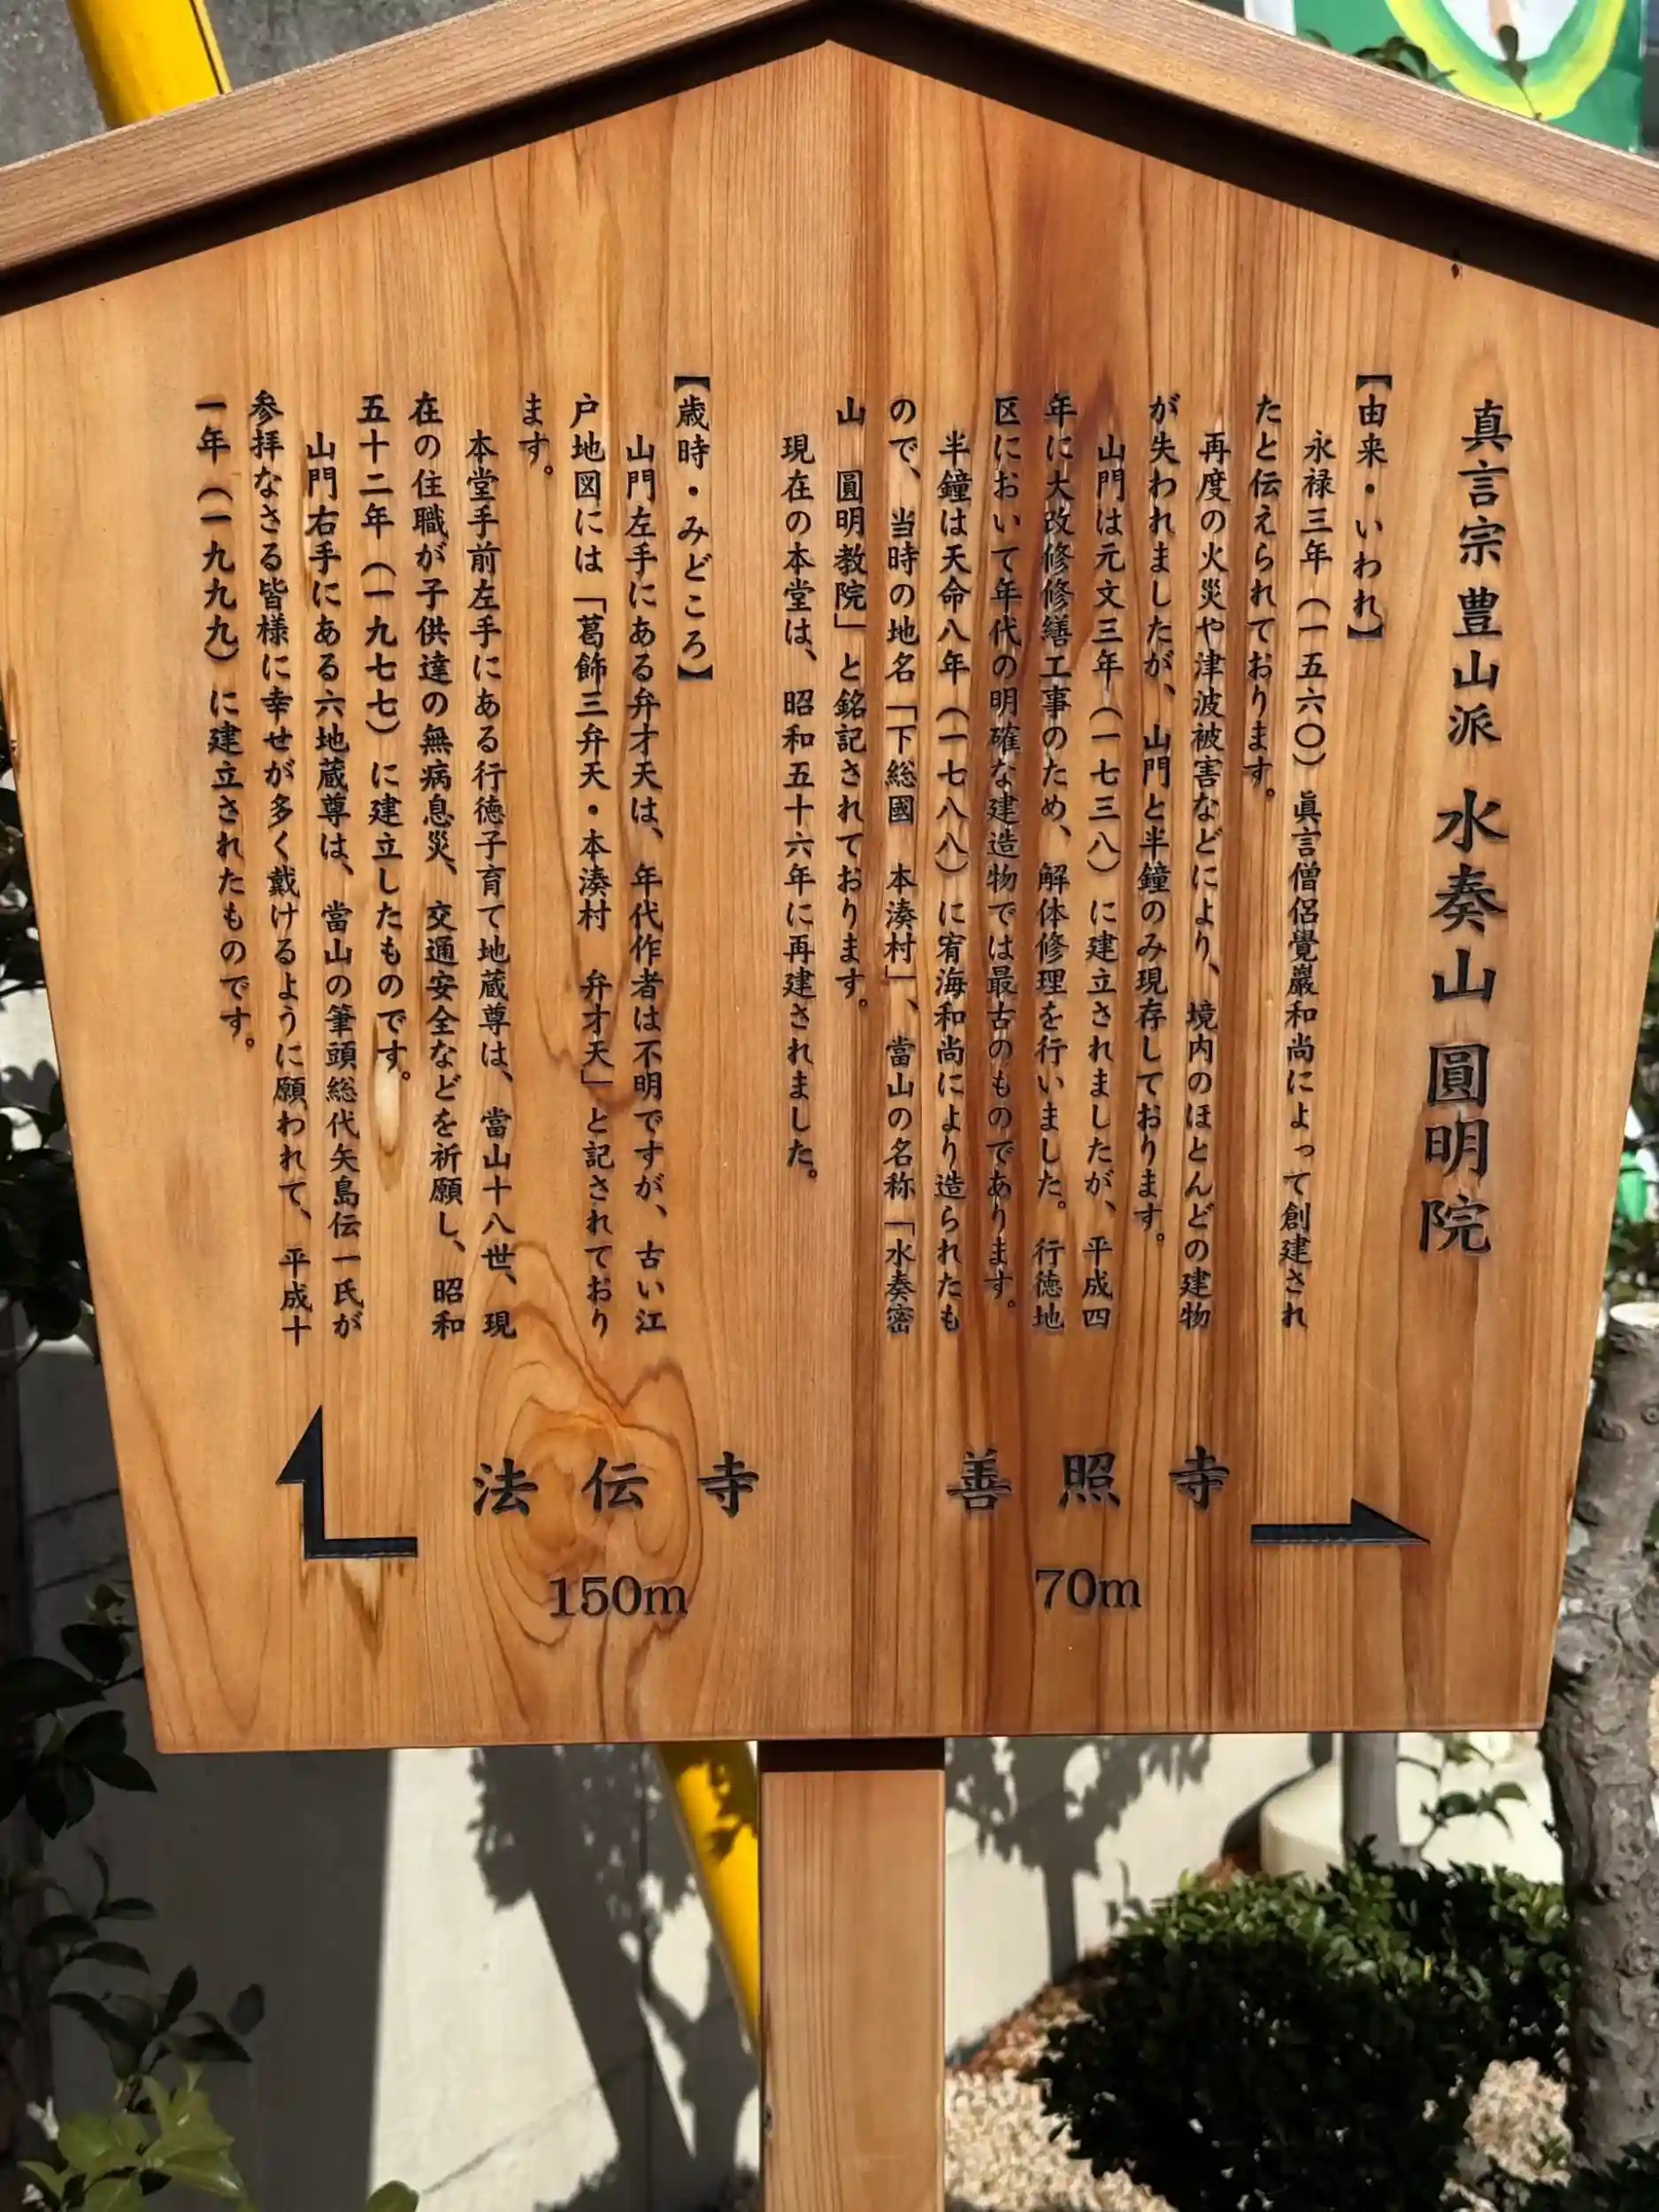 真言宗 豊山派 水奏山 圓明院
【由来・いわれ】
永禄三年（一五六〇）眞言僧侶覺巖和尚によって創建され
たと伝えられております。
再度の火災や津波被害などにより、境内のほとんどの建物
が失われましたが、山門と半鐘のみ現存しております。
山門は元文三年（一七三八）に建立されましたが、平成四
年に大改修修繕工事のため、解体修理を行いました。行徳地
区において年代の明確な建造物では最古のものであります。
半鐘は天命八年（一七八八）に宥海和尚により造られたも
ので、当時の地名「下総國 本湊村」、當山の名称「水奏密
山 圓明教院」と銘記されております。
現在の本堂は、昭和五十六年に再建されました。
【歳時・みどころ】
山門左手にある弁才天は、年代作者は不明ですが、古い江
戸地図には「葛飾三弁天・本湊村 弁才天」と記されており
ます。
本堂手前左手にある行徳子育て地蔵尊は、當山十八世、現
在の住職が子供達の無病息災、交通安全などを祈願し、昭和
五十二年（一九七七）に建立したものです。
山門右手にある六地蔵尊は、當山の筆頭総代矢島伝一氏が
参拝なさる皆様に幸せが多く戴けるように願われて、平成十
一年（一九九九）に建立されたものです。
法伝寺
150m
善照寺
70m